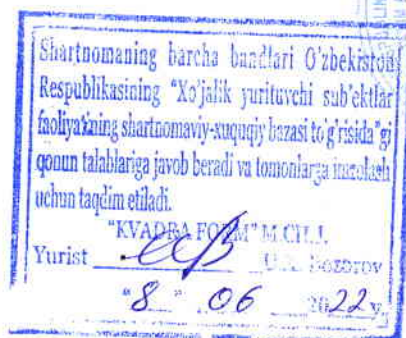 Shartnomaning barcha bandlari O'zbekiston
Respublikasining "Xo'jalik yurituvchi sub'ektlar
faoliyatining shartnomaviy-xuquqiy bazasi to'g'risida"gi
qonun talablariga javob beradi va tomonlarga imzolash
uchun taqdim etiladi.
"KVADRA FORM" M.CH.J.
Yurist Bozorov
"8" 06 2022 y.